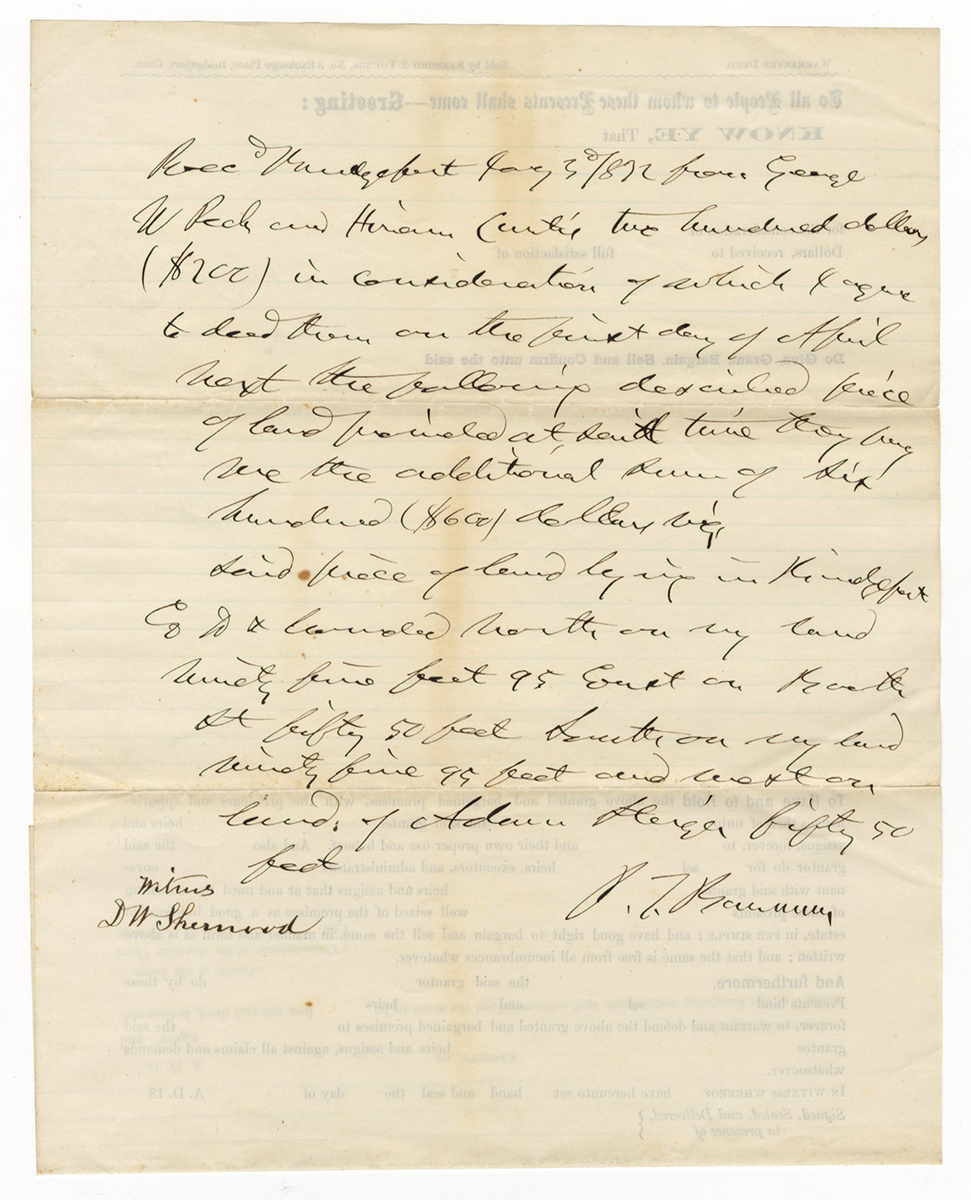 Rec'd Bridgeport Jany 3d 1872 from George
W Peck and Hiram Curtis two hundred dollars
($200) in consideration of which I agree
to deed them on the first day of April
next the following described piece
of land provided at said time they pay
me the additional sum of six
hundred ($600) dollars viz,
said piece of land lying in Bridgeport
& bounded North on my land
ninety five feet 95 East on Booth
St fifty 50 feet South on my land
ninety five 95 feet and west on
land of Adam fifty 50
feet
P. T. Barnum
Witness
D W Sherwood
WARRANTEE DEED.
Sold by SANFORD & No. 3 Exchange Place, Bridgeport, Conn.
To all People to whom these Presents shall come—Greeting:
KNOW YE, That
Dollars, received to full satisfaction of
Do Give, Grant, Bargain, Sell and Confirm unto the said
To Have and to Hold the above granted and bargained premises, with the privileges and
heirs and
assigns forever, to and their own proper use and behoof. And also the said
grantor do for sel heirs, executors, and administrators cove-
nant with said grantee heirs and assigns that at and until
of these presents well seized of the premises as a good
estate, in FEE SIMPLE; and have good right to bargain and sell the same, in manner and form as is above
written; and that the same is free from all incumbrances whatever.
And furthermore, the said grantor do by these
Presents bind sel and heirs
forever, to warrant and defend the above granted and bargained premises to the said
grantee heirs and assigns, against all claims and demands
whatsoever.
IN WITNESS WHEREOF have hereunto set hand and seal the day of A. D. 18
Signed, Sealed, and Delivered,
in presence of